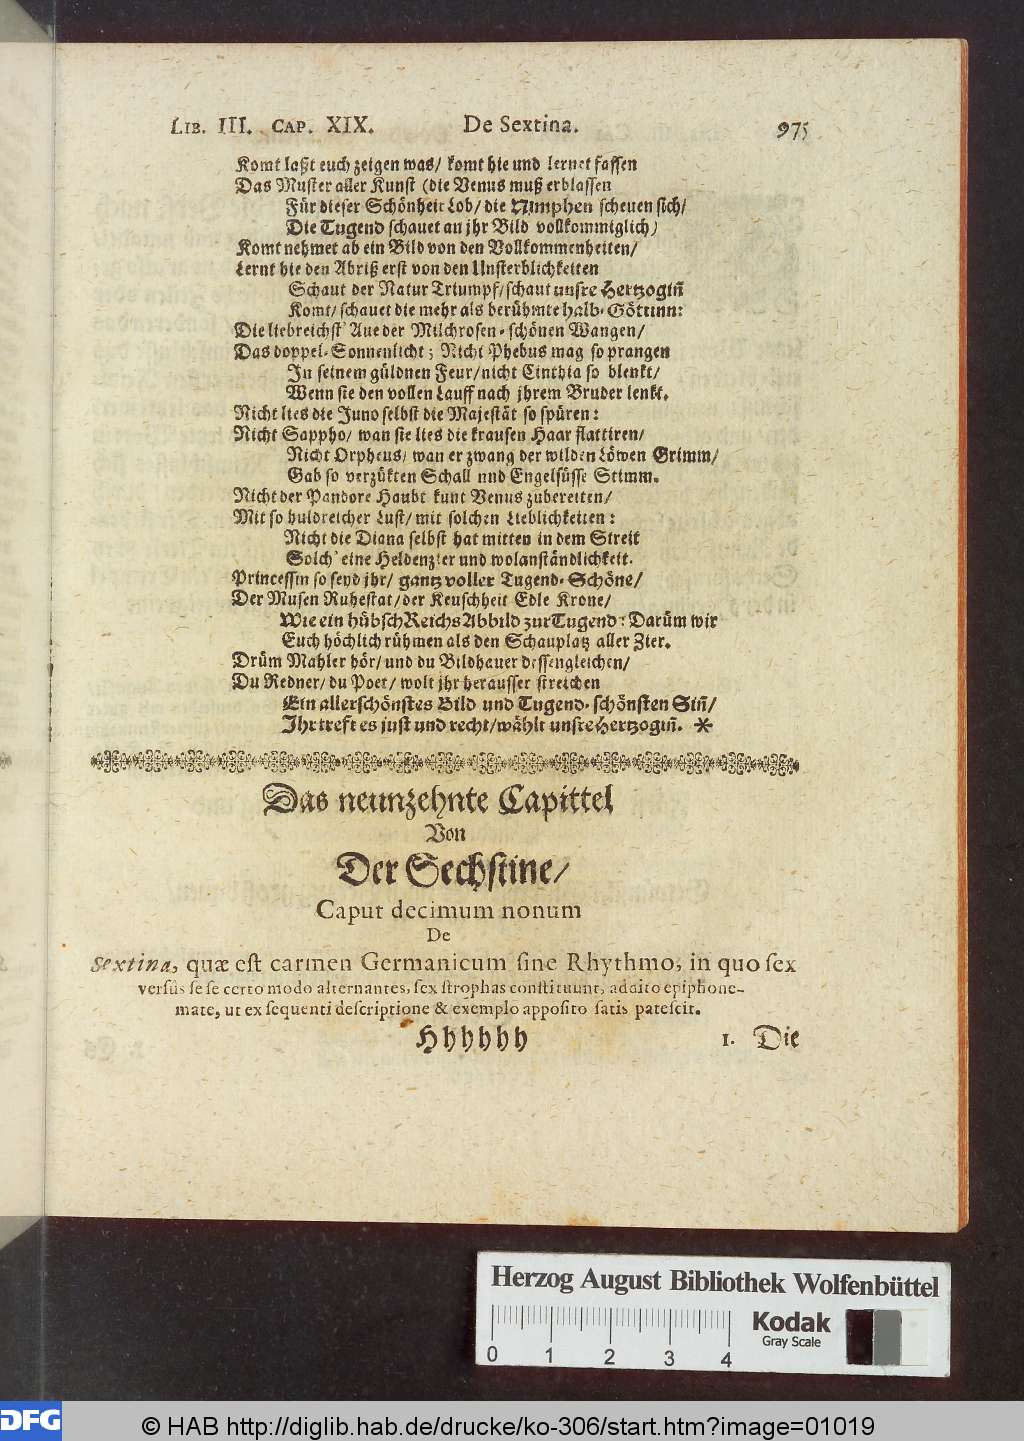 LIB. III. CAP. XIX. De Sextina. 975
Komt laßt euch zeigen was/ komt hie und lernet fassen
Das Muster aller Kunst (die Venus muß erblassen
Für dieser Schönheit Lob/ die Nimphen scheuen sich/
Die Tugend schauet an jhr Bild vollkommiglich)
Komt nehmet ab ein Bild von den Vollkommenheiten/
Lernt hie den Abriß erst von den Unsterblichkeiten
Schaut der Natur Triumpf/ schaut unsre Hertzogiñ
Komt/ schauet die mehr als berühmte halb-Göttinn:
Die liebreichst' Aue der Milchrosen-schönen Wangen/
Das doppel-Sonnenlicht; Nicht Phebus mag so prangen
In seinem güldnen Feur/ nicht Cinthia so blenkt/
Wenn sie den vollen Lauff nach jhrem Bruder lenkt.
Nicht lies die Juno selbst die Majestät so spüren:
Nicht Sappho/ wan sie lies die krausen Haar flattiren/
Nicht Orpheus/ wan er zwang der wilden Löwen Grimm/
Gab so verzükten Schall und Engelsüsse Stimm.
Nicht der Pandore Haubt kunt Venus zubereiten/
Mit so huldreicher Lust/ mit solchen Lieblichkeiten:
Nicht die Diana selbst hat mitten in dem Streit
Solch' eine Heldenzier und wolanständlichkeit.
Princessin so seyd jhr/ gantz voller Tugend-Schöne/
Der Musen Ruhestat/ der Keuschheit Edle Krone/
Wie ein hübsch Reichs Abbild zur Tugend: Darüm wir
Euch höchlich rühmen als den Schauplatz aller Zier.
Drüm Mahler hör/ und du Bildhauer dessengleichen/
Du Redner/ du Poet/ wolt jhr herausser streichen
Ein allerschönstes Bild und Tugend-schönsten Siñ/
Ihr treft es just und recht/ wählt unsre Hertzogiñ. *
Das neunzehnte Capittel
Von
Der Sechstine/
Caput decimum nonum
De
Sextina, quæ est carmen Germanicum sine Rhythmo, in quo sex
versûs se se certo modo alternantes, sex strophas constituunt, addito epiphone-
mate, ut ex sequenti descriptione & exemplo apposito satis patescit.
Hhhhhh 1. Die
Herzog August Bibliothek Wolfenbüttel
0 1 2 3 4
Kodak
Gray Scale
DFG © HAB http://diglib.hab.de/drucke/ko-306/start.htm?image=01019